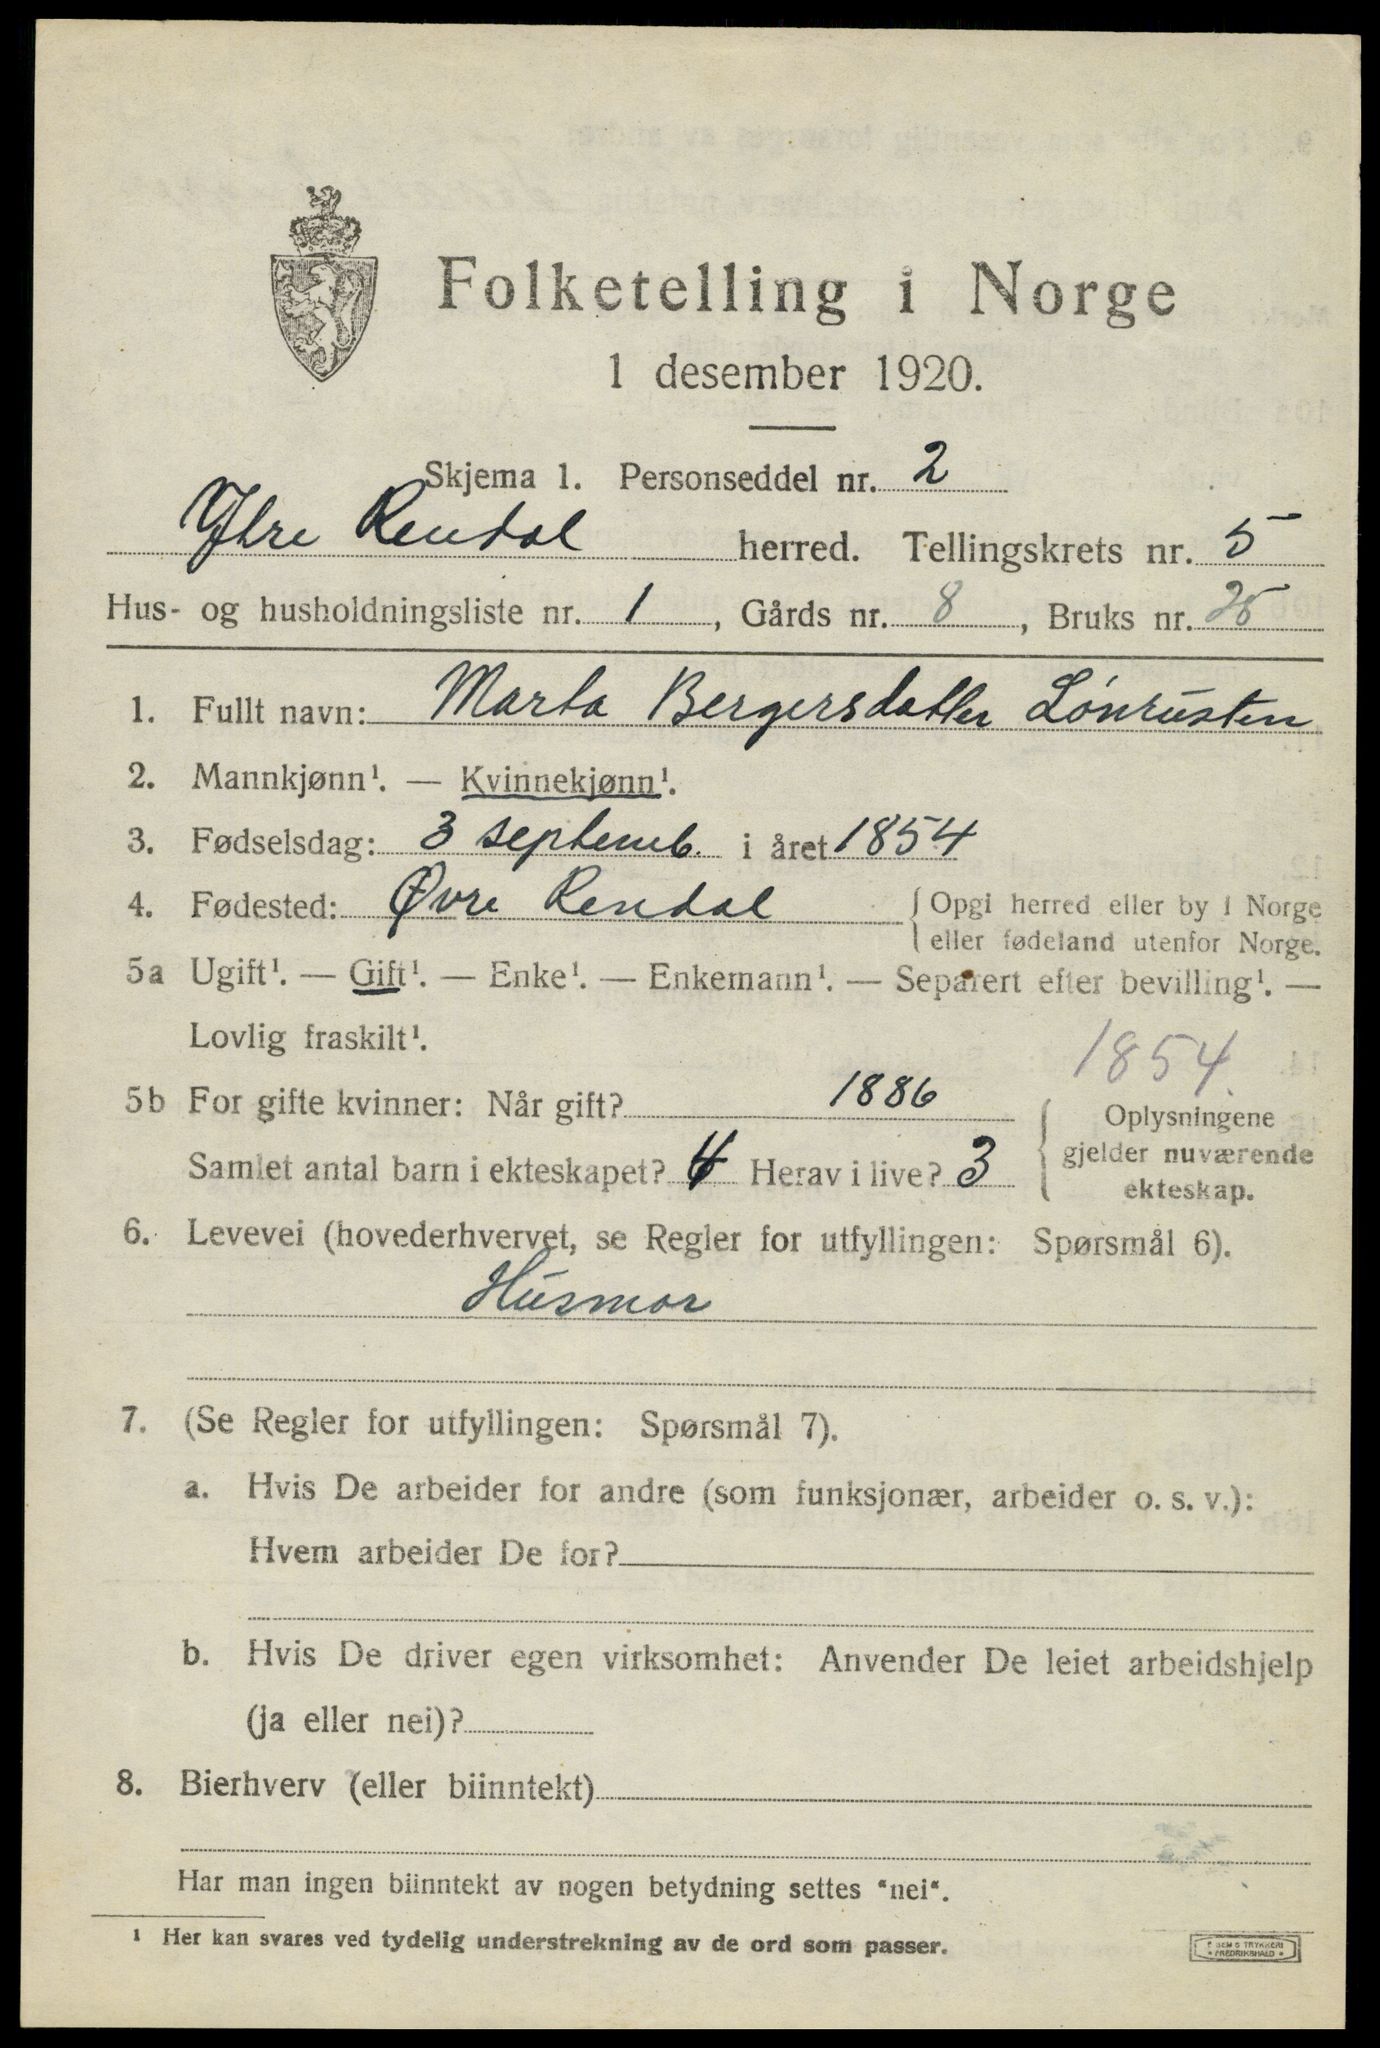 Folketelling i Norge
1 desember 1920.
Skjema 1. Personseddel nr. 2
Ytre Rendal herred. Tellingskrets nr. 5
Hus- og husholdningsliste nr. 1, Gårds nr. 8, Bruks nr. 25
1. Fullt navn: Marta Bergersdatter Lønrusten
2. Mannkjønn¹. — Kvinnekjønn¹.
3. Fødselsdag: 3 septemb. i året 1854
4. Fødested: Øvre Rendal { Opgi herred eller by i Norge
eller fødeland utenfor Norge.
5a Ugift¹. — Gift¹. — Enke¹. — Enkemann¹. — Separert efter bevilling¹. —
Lovlig fraskilt¹.
1854.
5b For gifte kvinner: Når gift? 1886
Samlet antal barn i ekteskapet? 4 Herav i live? 3
Oplysningene
gjelder nuværende
ekteskap.
6. Levevei (hovederhvervet, se Regler for utfyllingen: Spørsmål 6).
Husmor
7. (Se Regler for utfyllingen: Spørsmål 7).
a. Hvis De arbeider for andre (som funksjonær, arbeider o. s. v.):
Hvem arbeider De for?
b. Hvis De driver egen virksomhet: Anvender De leiet arbeidshjelp
(ja eller nei)?
8. Bierhverv (eller biinntekt)
Har man ingen biinntekt av nogen betydning settes "nei".
¹ Her kan svares ved tydelig understrekning av de ord som passer.
SEM S TRYKKERI
FREDRIKSHALD